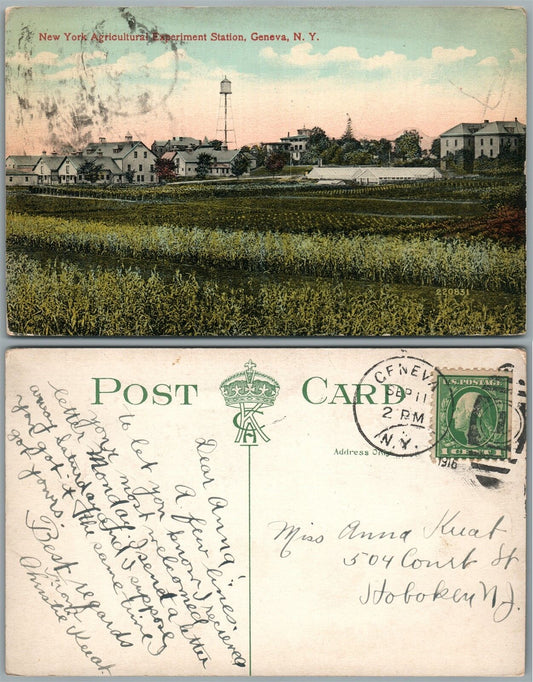 New York Agricultural Experiment Station, Geneva, N. Y.
220831
POST CARD
Address Only
GENEVA
SEP 11
2 PM
N.Y.
1916
U.S. POSTAGE
Dear Anna:
A few lines.
to let you know I received
your most welcomed
letter Monday. I send a letter
away Saturday and I suppose
you got it the same time I
got yours.
Best regards
from
Christie Kuat.
Miss Anna Kuat
504 Court St
Hoboken N.J.